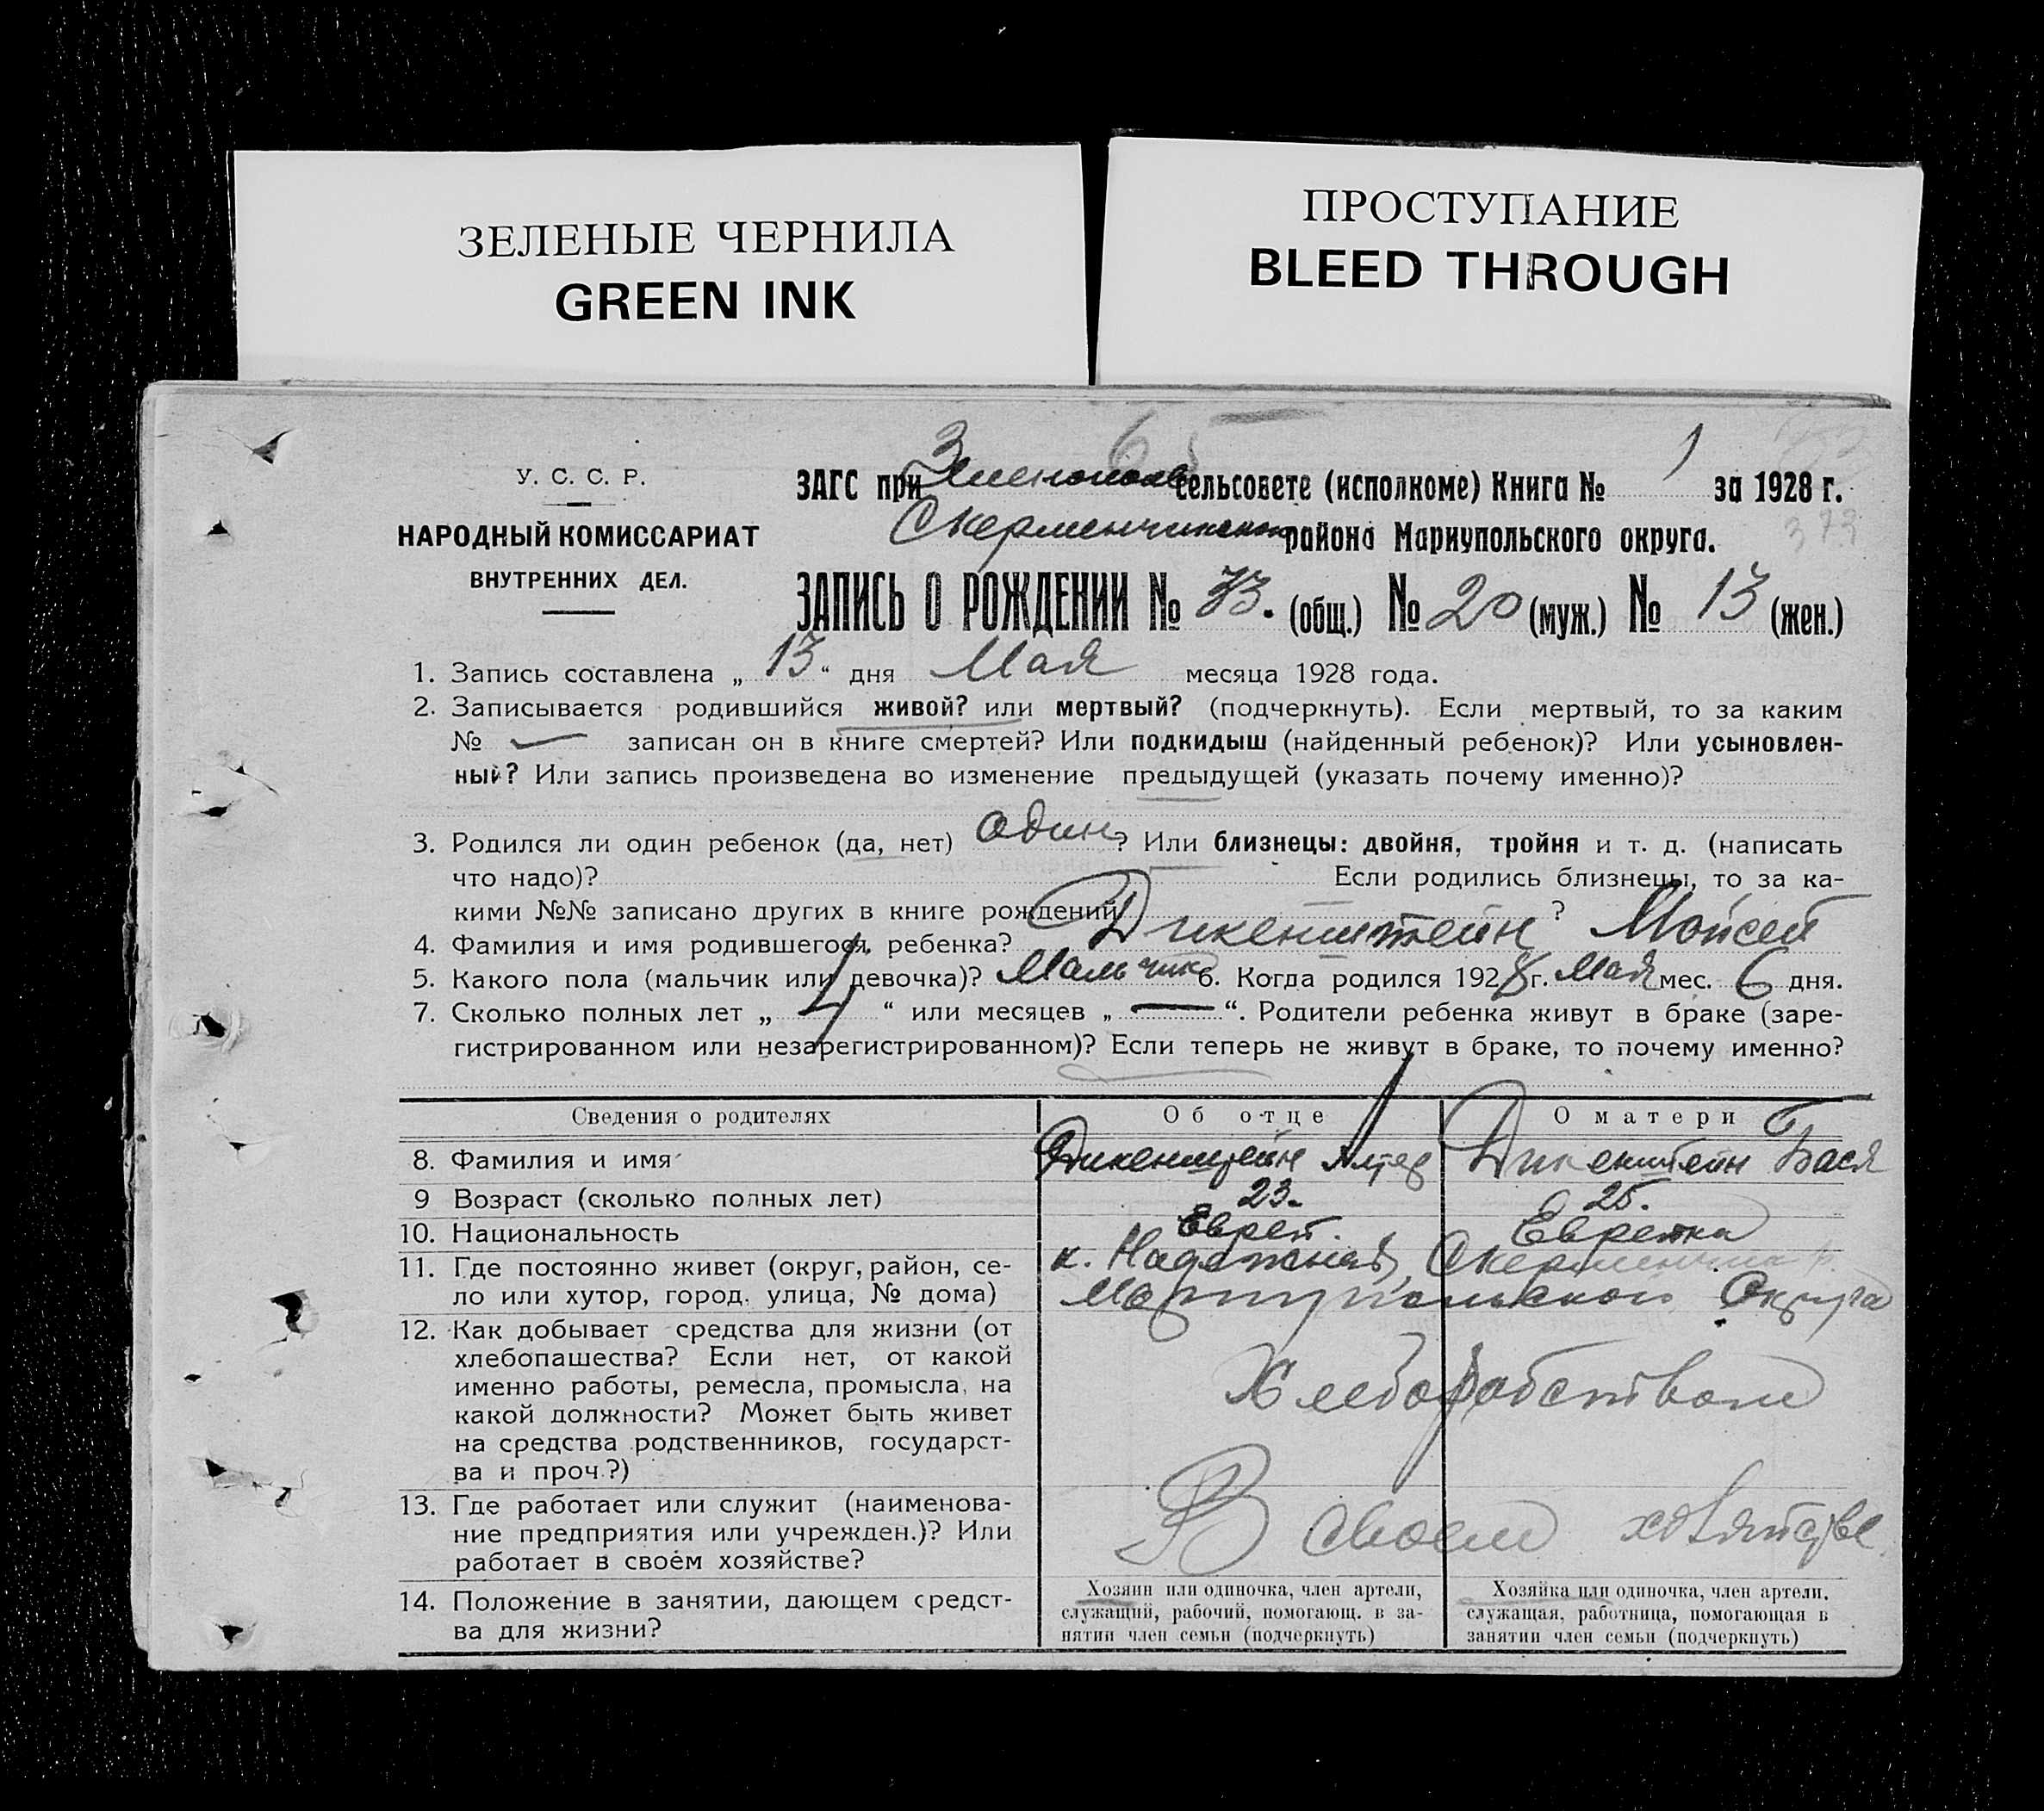 ЗЕЛЕНЫЕ ЧЕРНИЛА
GREEN INK
ПРОСТУПАНИЕ
BLEED THROUGH
65
У. С. С. Р.
НАРОДНЫЙ КОМИССАРИАТ
ВНУТРЕННИХ ДЕЛ.
ЗАГС при сельсовете (исполкоме) Книга № 1 за 1928 г.
района Мариупольского округа.
373
ЗАПИСЬ О РОЖДЕНИИ № 33. (общ.) № 20 (муж.) № 13 (жен.)
1. Запись составлена „ 13 “ дня Мая месяца 1928 года.
2. Записывается родившийся живой? или мертвый? (подчеркнуть). Если мертвый, то за каким
№ — записан он в книге смертей? Или подкидыш (найденный ребенок)? Или усыновлен-
ный? Или запись произведена во изменение предыдущей (указать почему именно)?
3. Родился ли один ребенок (да, нет) один ? Или близнецы: двойня, тройня и т. д. (написать
что надо)? Если родились близнецы, то за ка-
кими №№ записано других в книге рождений ?
4. Фамилия и имя родившегося ребенка? Дикенштейн Мойсей
5. Какого пола (мальчик или девочка)? Мальчик 6. Когда родился 1928 г. Мая мес. 6 дня.
7. Сколько полных лет „ “ или месяцев „ — “. Родители ребенка живут в браке (заре-
гистрированном или незарегистрированном)? Если теперь не живут в браке, то почему именно?
Сведения о родителях Об отце О матери
8. Фамилия и имя Дикенштейн Алтер Дикенштейн Бася
9 Возраст (сколько полных лет) 23. 25.
10. Национальность Еврей. Еврейка
11. Где постоянно живет (округ, район, се-
ло или хутор, город. улица, № дома)
к. Надежная,
Мариупольского Округа
12. Как добывает средства для жизни (от
хлебопашества? Если нет, от какой
именно работы, ремесла, промысла, на
какой должности? Может быть живет
на средства родственников, государст-
ва и проч.?)
Хлеборобством
13. Где работает или служит (наименова-
ние предприятия или учрежден.)? Или
работает в своем хозяйстве?
В своем хозяйстве
14. Положение в занятии, дающем средст-
ва для жизни?
Хозяин или одиночка, член артели,
служащий, рабочий, помогающ. в за-
нятии член семьи (подчеркнуть)
Хозяйка или одиночка, член артели,
служащая, работница, помогающая в
занятии член семьи (подчеркнуть)